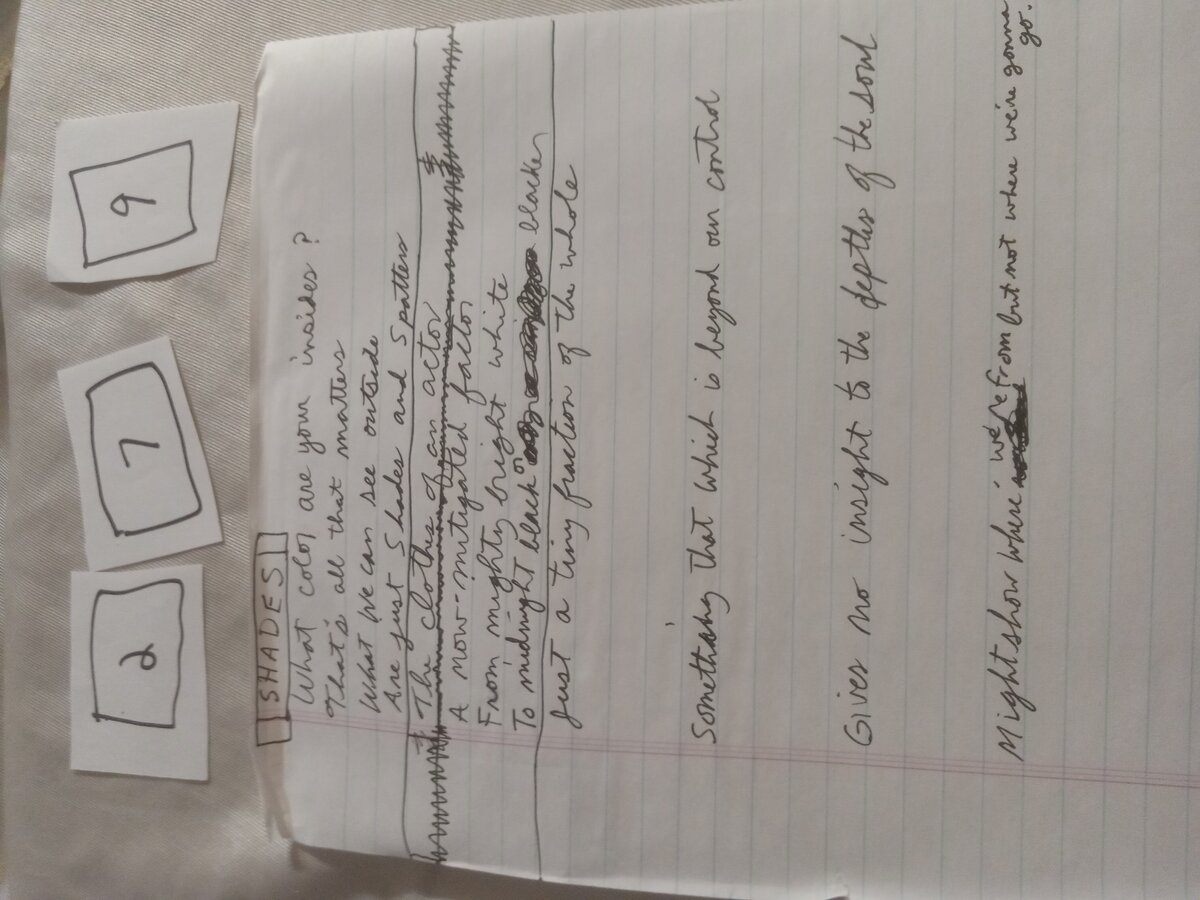 2 7 9
SHADES
What color are your insides?
That's all that matters
What we can see outside
Are just shades and spatters
The clothes of an actor
A now-mitigated factor
From mighty bright white
To midnight black or blacker
Just a tiny fraction of the whole
Something that which is beyond our control
Gives no insight to the depths of the soul
Might show where we're from but not where we're gonna go.